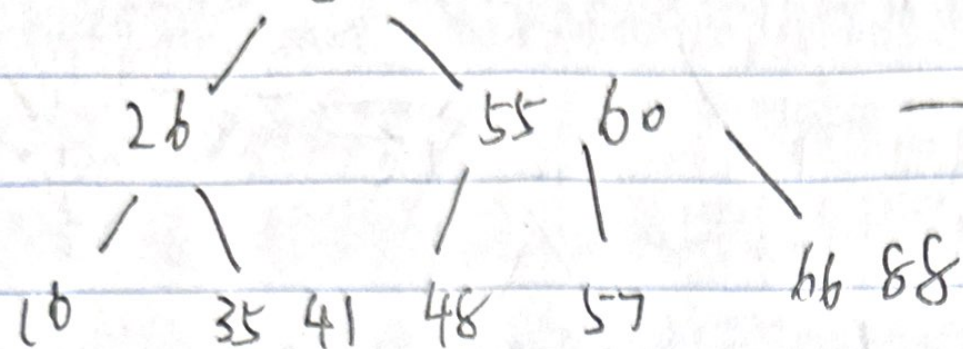 26 55 60
16 35 41 48 57 66 88